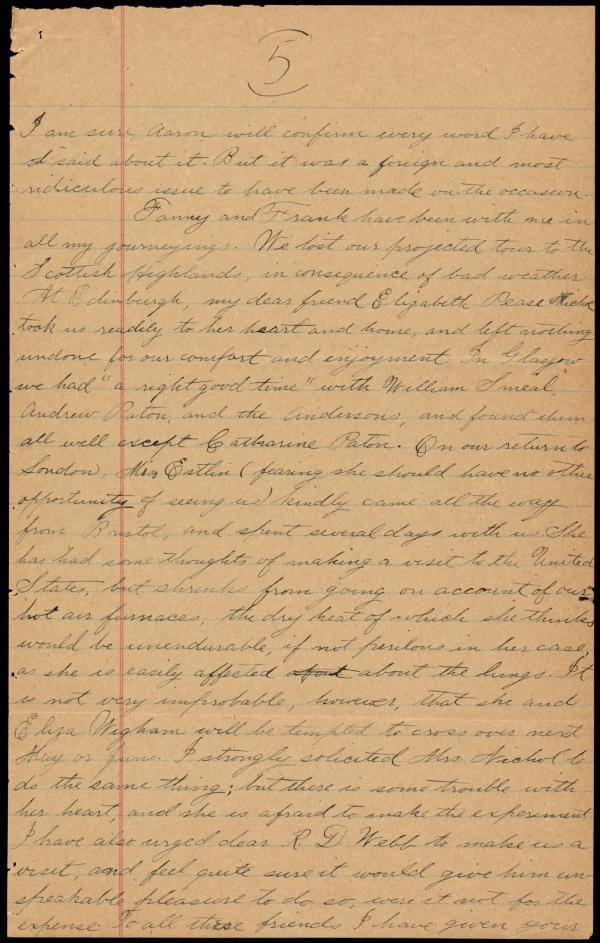 5
I am sure Aaron will confirm every word I have
said about it. But it was a foreign and most
ridiculous issue to have been made on the occasion.
Fanny and Frank have been with me in
all my journeyings. We lost our projected tour to the
Scottish Highlands, in consequence of bad weather
At Edinburgh, my dear friend Elizabeth Pease Nichol
took us readily to her heart and home, and left nothing
undone for our comfort and enjoyment. In Glasgow
we had "a right good time" with William Smeal,
Andrew Paton, and the Andersons, and found them
all well except Catharine Paton. On our return to
London, Miss Estlin (fearing she should have no other
opportunity of seeing us) kindly came all the way
from Bristol, and spent several days with us. She
has had some thoughts of making a visit to the United
States, but shrinks from going on account of our
hot air furnaces, the dry heat of which she thinks
would be unendurable, if not perilous in her case,
as she is easily affected about about the lungs. It
is not very improbable, however, that she and
Eliza Wigham will be tempted to cross over next
May or June. I strongly solicited Mrs. Nichol to
do the same thing; but there is some trouble with
her heart, and she is afraid to make the experiment.
I have also urged dear R. D. Webb to make us a
visit, and feel quite sure it would give him un-
speakable pleasure to do so, were it not for the
expense. To all these friends I have given your